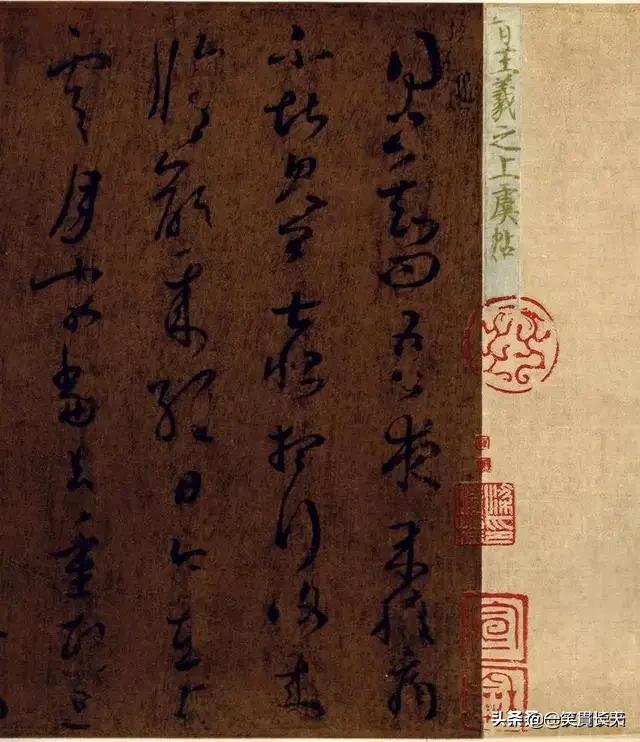 晉王羲之上虞帖
得書知問吾夜來腹痛
不堪見卿甚恨想行復來
修齡來經日今在上
虞月末當去重熙旦
宣
龢
头条